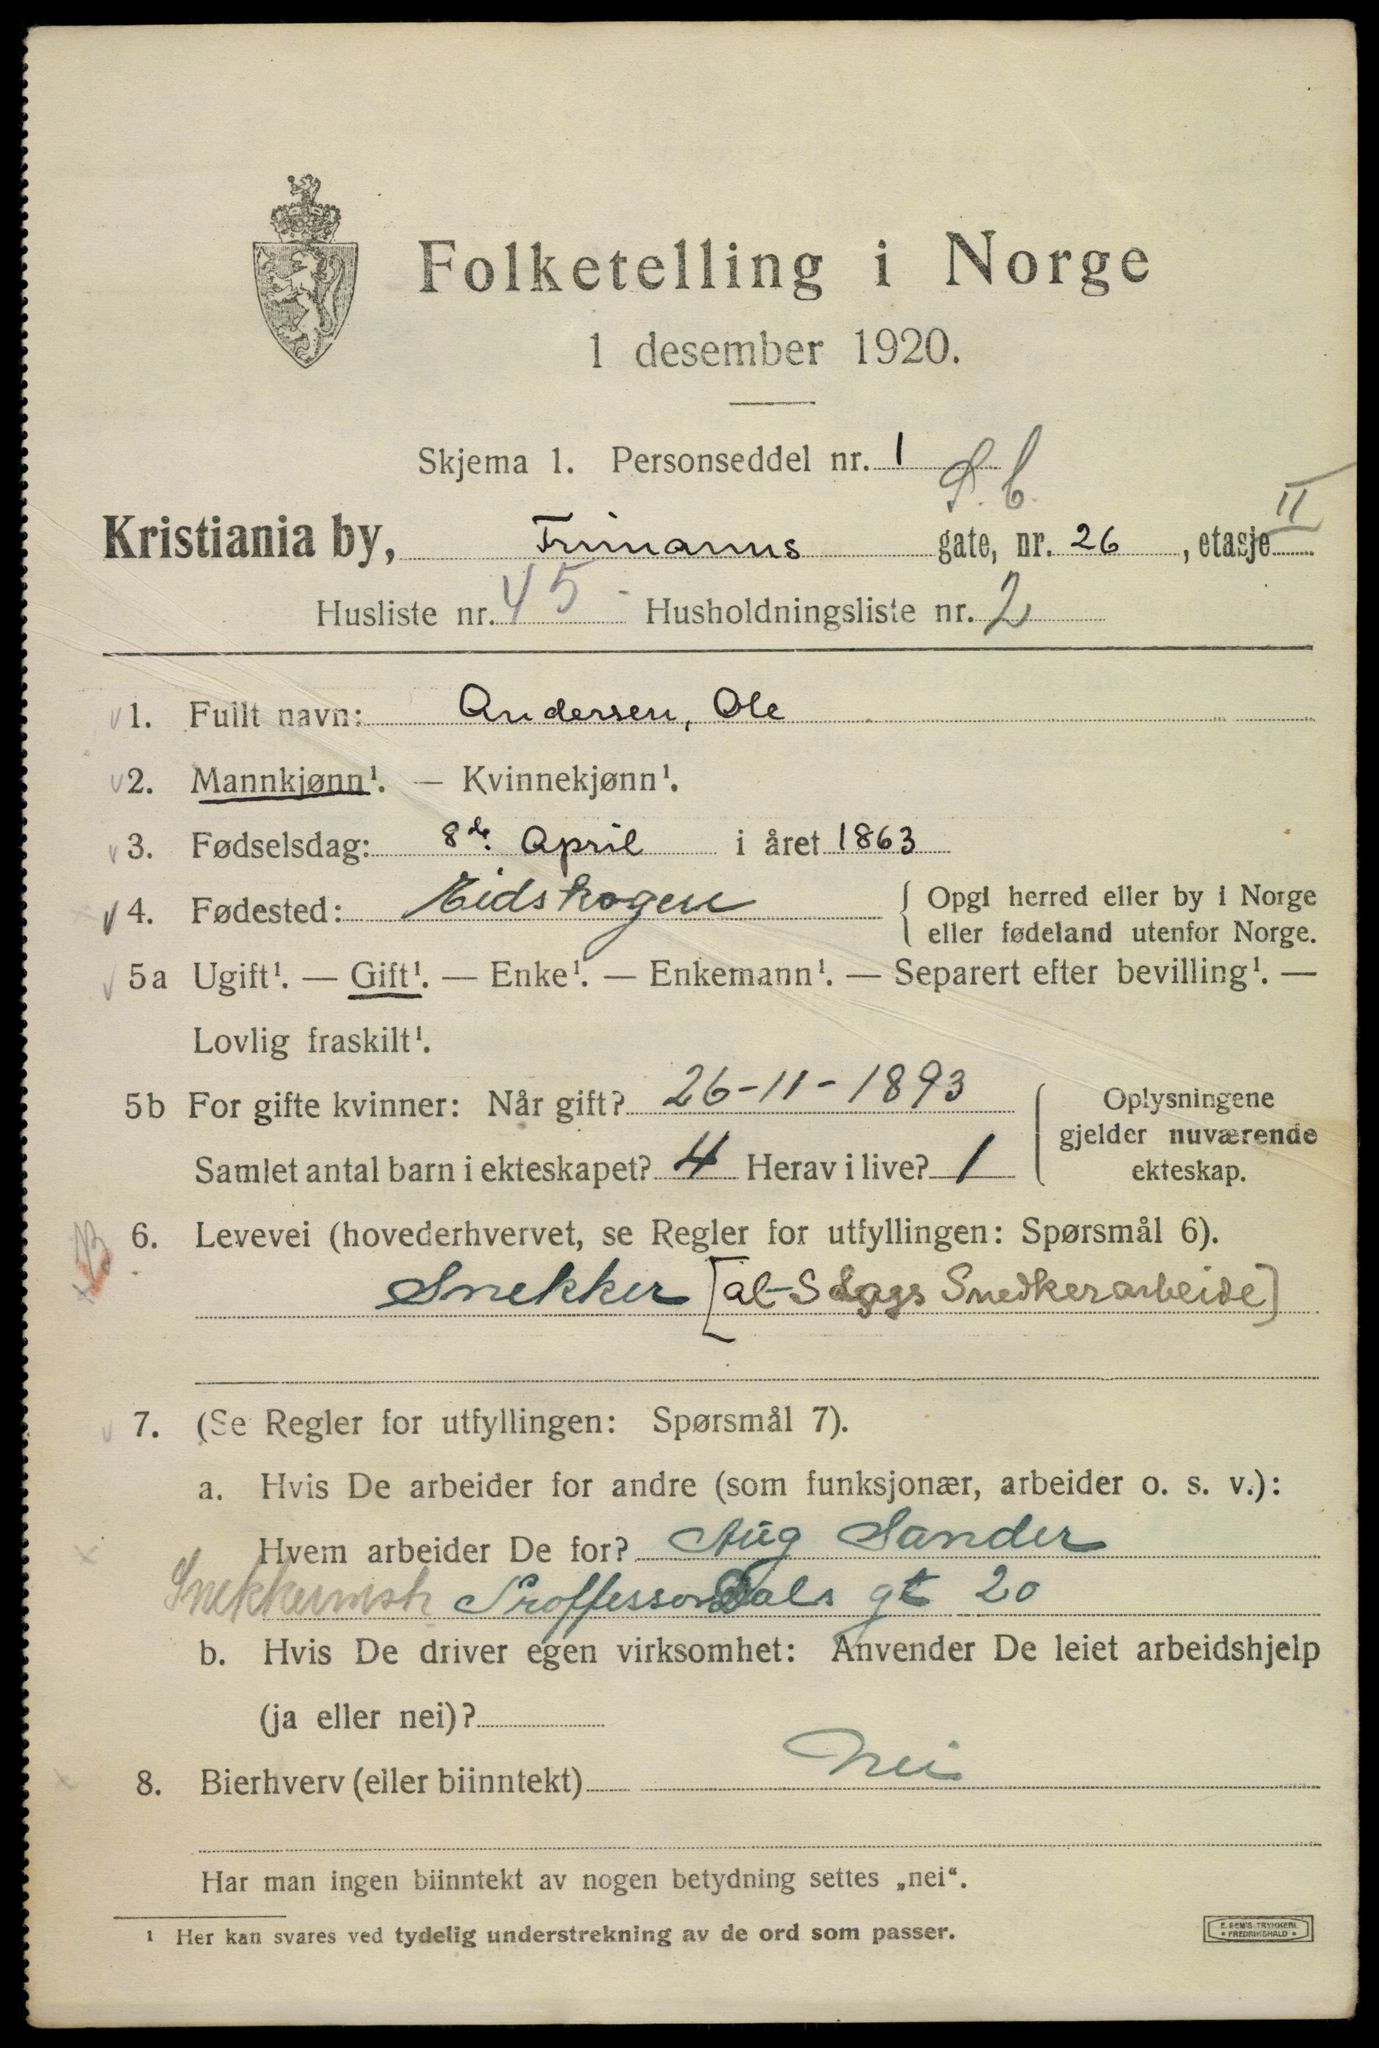 Folketelling i Norge
1 desember 1920.
Skjema 1. Personseddel nr. 1
Kristiania by, Frimanns gate, nr. 26, etasje II
Husliste nr. 45 Husholdningsliste nr. 2
1. Fullt navn: Andersen, Ole
2. Mannkjønn¹. — Kvinnekjønn¹.
3. Fødselsdag: 8de. April i året 1863
4. Fødested: Eidskogen { Opgi herred eller by i Norge
eller fødeland utenfor Norge.
5a Ugift¹. — Gift¹. — Enke¹. — Enkemann¹. — Separert efter bevilling¹. —
Lovlig fraskilt¹.
5b For gifte kvinner: Når gift? 26-11-1893 { Oplysningene
gjelder nuværende
ekteskap.
Samlet antal barn i ekteskapet? 4 Herav i live? 1
6. Levevei (hovederhvervet, se Regler for utfyllingen: Spørsmål 6).
Snekker [al-Slags Snedkerarbeide]
7. (Se Regler for utfyllingen: Spørsmål 7).
a. Hvis De arbeider for andre (som funksjonær, arbeider o. s. v.):
Hvem arbeider De for? Aug Sander
Snekkermstr Proffessor Dals gt 20
b. Hvis De driver egen virksomhet: Anvender De leiet arbeidshjelp
(ja eller nei)?
8. Bierhverv (eller biinntekt) Nei
Har man ingen biinntekt av nogen betydning settes „nei“.
¹ Her kan svares ved tydelig understrekning av de ord som passer.
E. SEM'S TRYKKERI
FREDRIKSHALD